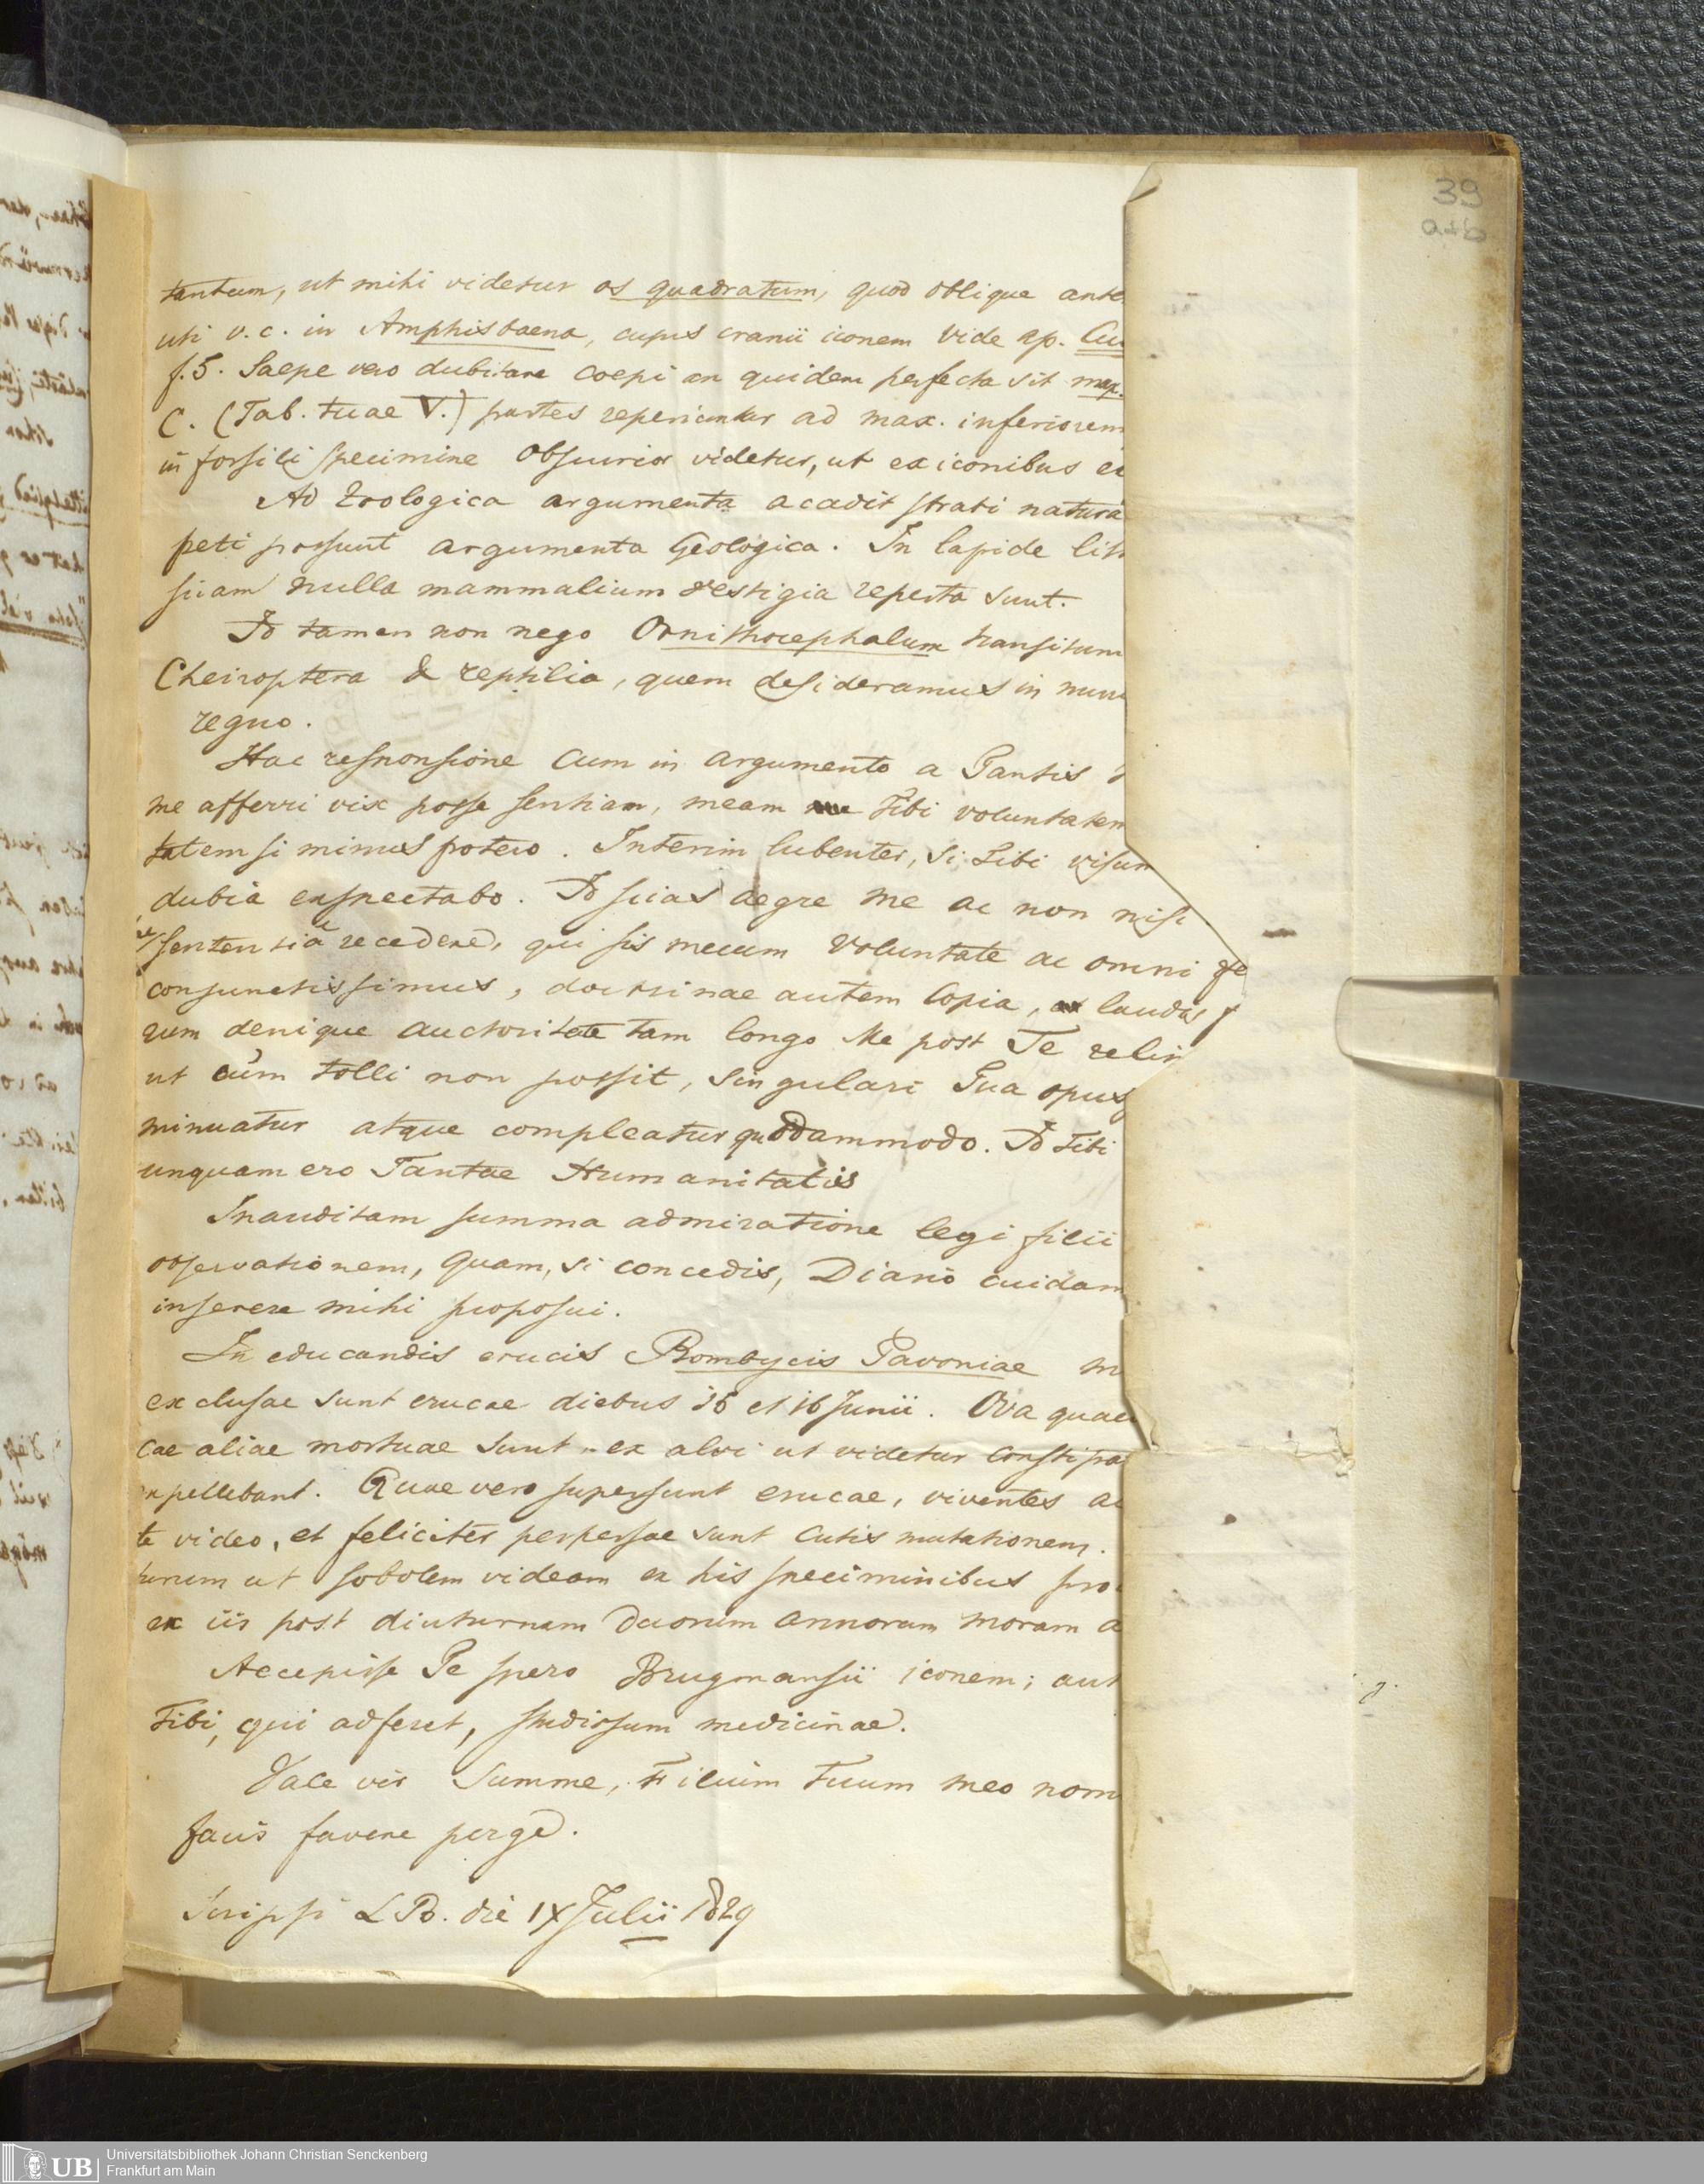 39
a u b
tantum, ut mihi videtur os quadratum, quod oblique ante
uti v. c. in Amphisbaena, cujus cranii iconem vide ap. Cu
f. 5. Saepe vero dubitare coepi an quidem perfecta sit max.
C. (Tab. tuae V.) partes reperiuntur ad max. inferiorem
in fossili specimine obscurior videtur, ut ex iconibus
Ad Zoologica argumenta accedit strati natura
peti possunt argumenta Geologica. In lapide lit
suam nulla mammalium vestigia reperta sunt.
Id tamen non nego Ornithocephalum transitum
Cheiroptera & reptilia, quem desideramus in nun
regno.
Hac responsione cum in argumento a Tantis
me afferri vix posse sentiam, meam Tibi voluntatem
tatem si minus potero. Interim lubenter, si Tibi visum
dubia exspectabo. Id scias aegre me ac non nisi
sententia recedere, qui sis mecum voluntate ac omni
conjunctissimus, doctrinae autem copia, laudis
rum denique auctoritate tam longo Me post Te relin
ut cum tolli non possit, singulari Tua opus
minuatur atque compleatur quodammodo. Id Tibi
unquam ero Tantae Humanitatis
Inauditam summa admiratione legi filii
observationem, quam, si concedis, Diario cuidam
inserere mihi proposui.
In educandis erucis Bombycis Pavoniae m
exclusae sunt erucae diebus 15 et 16 Junii. Ova quae
cae aliae mortuae sunt ex alvi ut videtur constipa
xpellebant. Quae vero supersunt erucae, viventes a
te video, et feliciter perpessae sunt cutis mutationem.
turum ut sobolem videam ex his speciminibus pro
ex iis post diuturnam duorum annorum moram a
Accepisse Te spero Brugmansii iconem; aut
Tibi, qui adferet, studiosum medicinae.
Vale vir summe, Filium Tuum meo nom
facis favere perge.
Scripsi L B. die IX Julii 1829
UB
Universitätsbibliothek Johann Christian Senckenberg
Frankfurt am Main